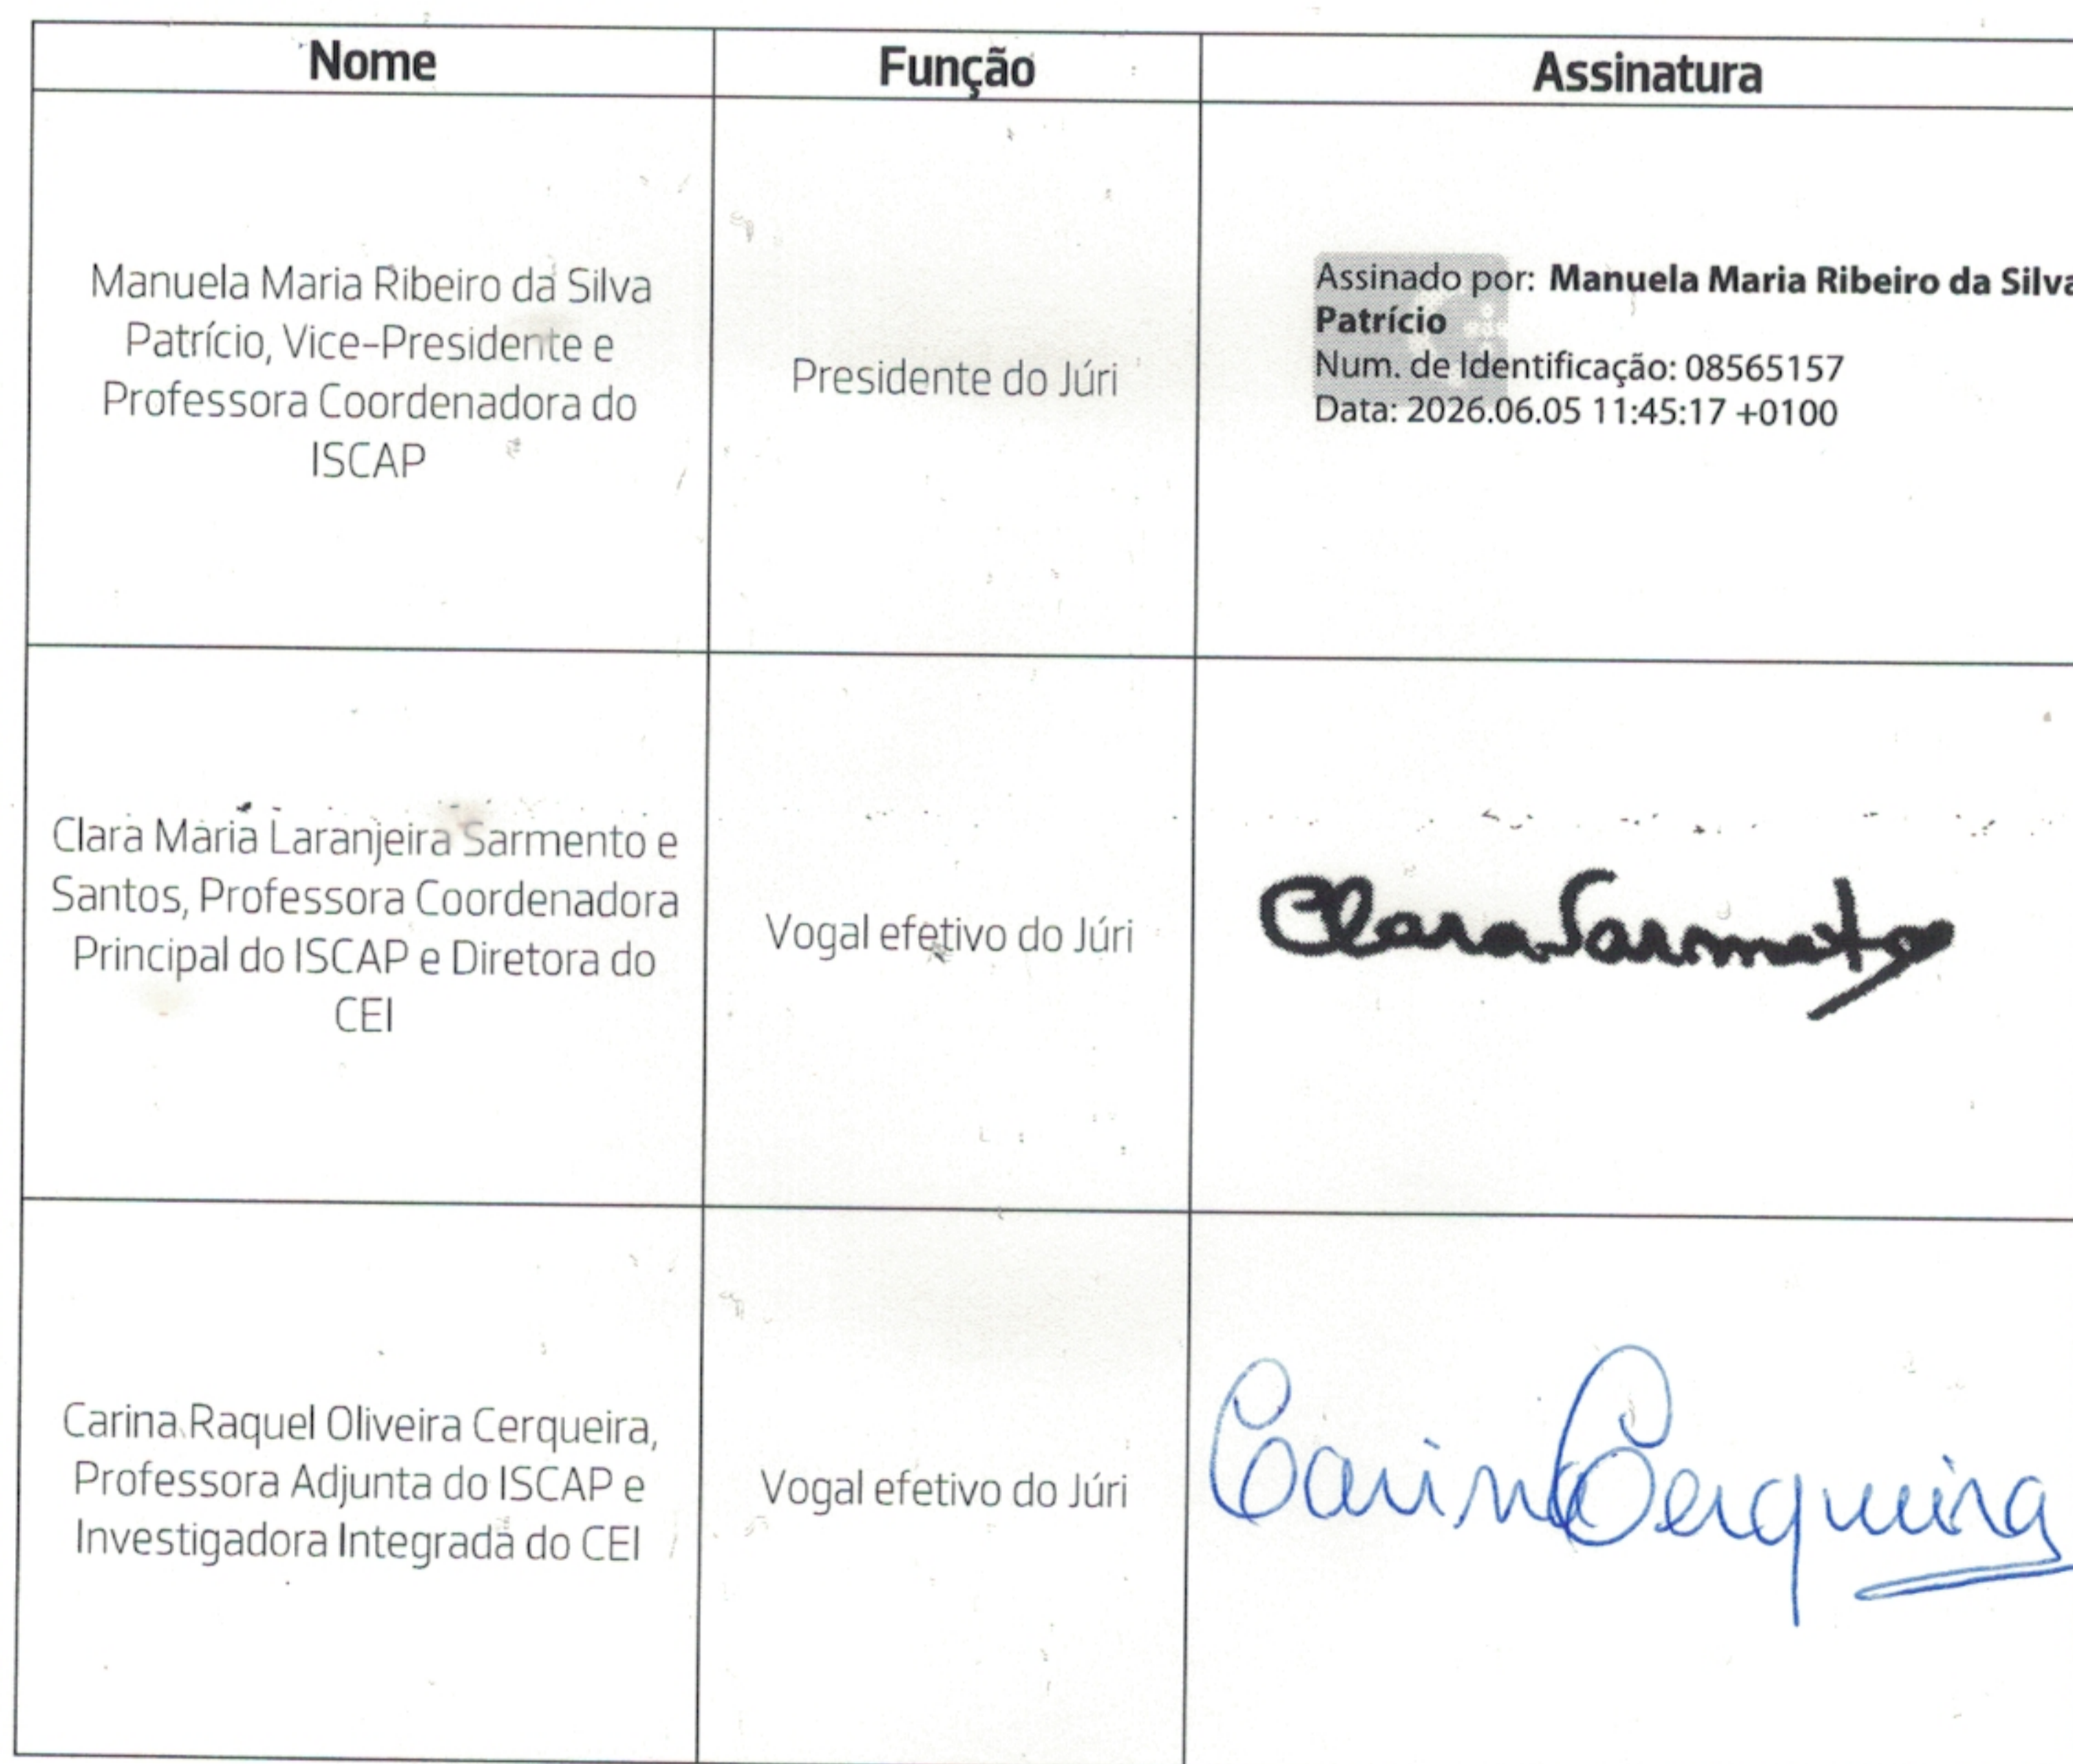 Nome
Função
Assinatura
Manuela Maria Ribeiro da Silva
Patrício, Vice-Presidente e
Professora Coordenadora do
ISCAP
Presidente do Júri
Assinado por: Manuela Maria Ribeiro da Silva
Patrício
Num. de Identificação: 08565157
Data: 2026.06.05 11:45:17 +0100
Clara Maria Laranjeira Sarmento e
Santos, Professora Coordenadora
Principal do ISCAP e Diretora do
CEI
Vogal efetivo do Júri
Clara Sarmento
Carina Raquel Oliveira Cerqueira,
Professora Adjunta do ISCAP e
Investigadora Integrada do CEI
Vogal efetivo do Júri
Carina Cerqueira